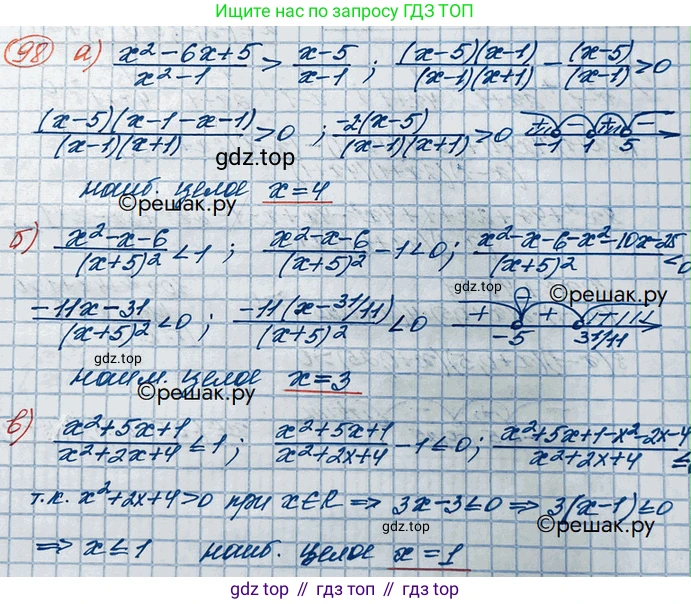 Ищите нас по запросу ГДЗ ТОП
98 а) (x²-6x+5)/(x²-1) > (x-5)/(x-1) ; ((x-5)(x-1))/((x-1)(x+1)) - (x-5)/(x-1) > 0
((x-5)(x-1-x-1))/((x-1)(x+1)) > 0 ; (-2(x-5))/((x-1)(x+1)) > 0 + - + - -1 1 5
gdz.top
наиб. целое x=4
©решак.ру
б) (x²-x-6)/(x+5)² < 1 ; (x²-x-6)/(x+5)² - 1 < 0 ; (x²-x-6-x²-10x-25)/(x+5)² < 0
gdz.top
©решак.ру
(-11x-31)/(x+5)² < 0 ; (-11(x-31/11))/(x+5)² < 0 + + - -5 31/11
gdz.top
наим. целое x=3
©решак.ру
в) (x²+5x+1)/(x²+2x+4) ≤ 1 ; (x²+5x+1)/(x²+2x+4) - 1 ≤ 0 ; (x²+5x+1-x²-2x-4)/(x²+2x+4) ≤
т.к. x²+2x+4>0 при x∈R ⇒ 3x-3≤0 ⇒ 3(x-1)≤0
gdz.top
©решак.ру
⇒ x≤1 наиб. целое x=1
©решак.ру
gdz top // gdz top // gdz top